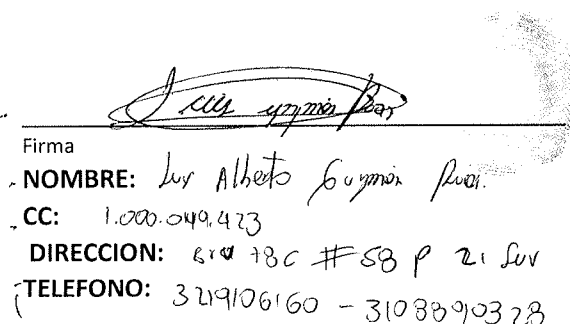 Luis Guzmán
Firma
NOMBRE: Luis Alberto Guzmán
CC: 1.000.049.423
DIRECCION: 78C #58 P 21 Sur
TELEFONO: 3219106160 - 3108890328